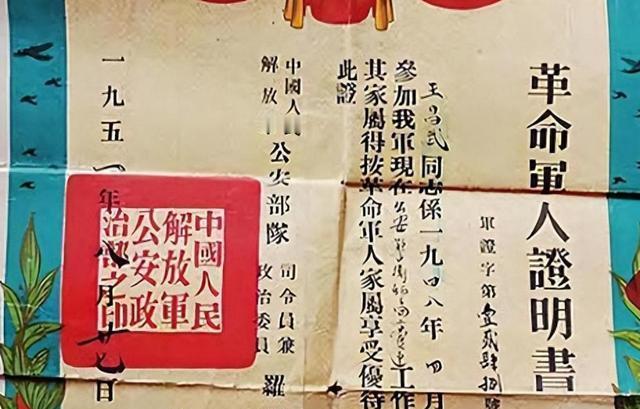 革命軍人證明書
軍證字第壹貳肆拾號
王昌武同志係一九四八年四月
參加我軍現在公安 工作
其家屬得按革命軍人家屬享受優待
此證
中國人
解放 公安部隊
司令員兼
政治委員 羅
一九五一年八月廿七日
中國人民
解放軍
公安政
治部之印